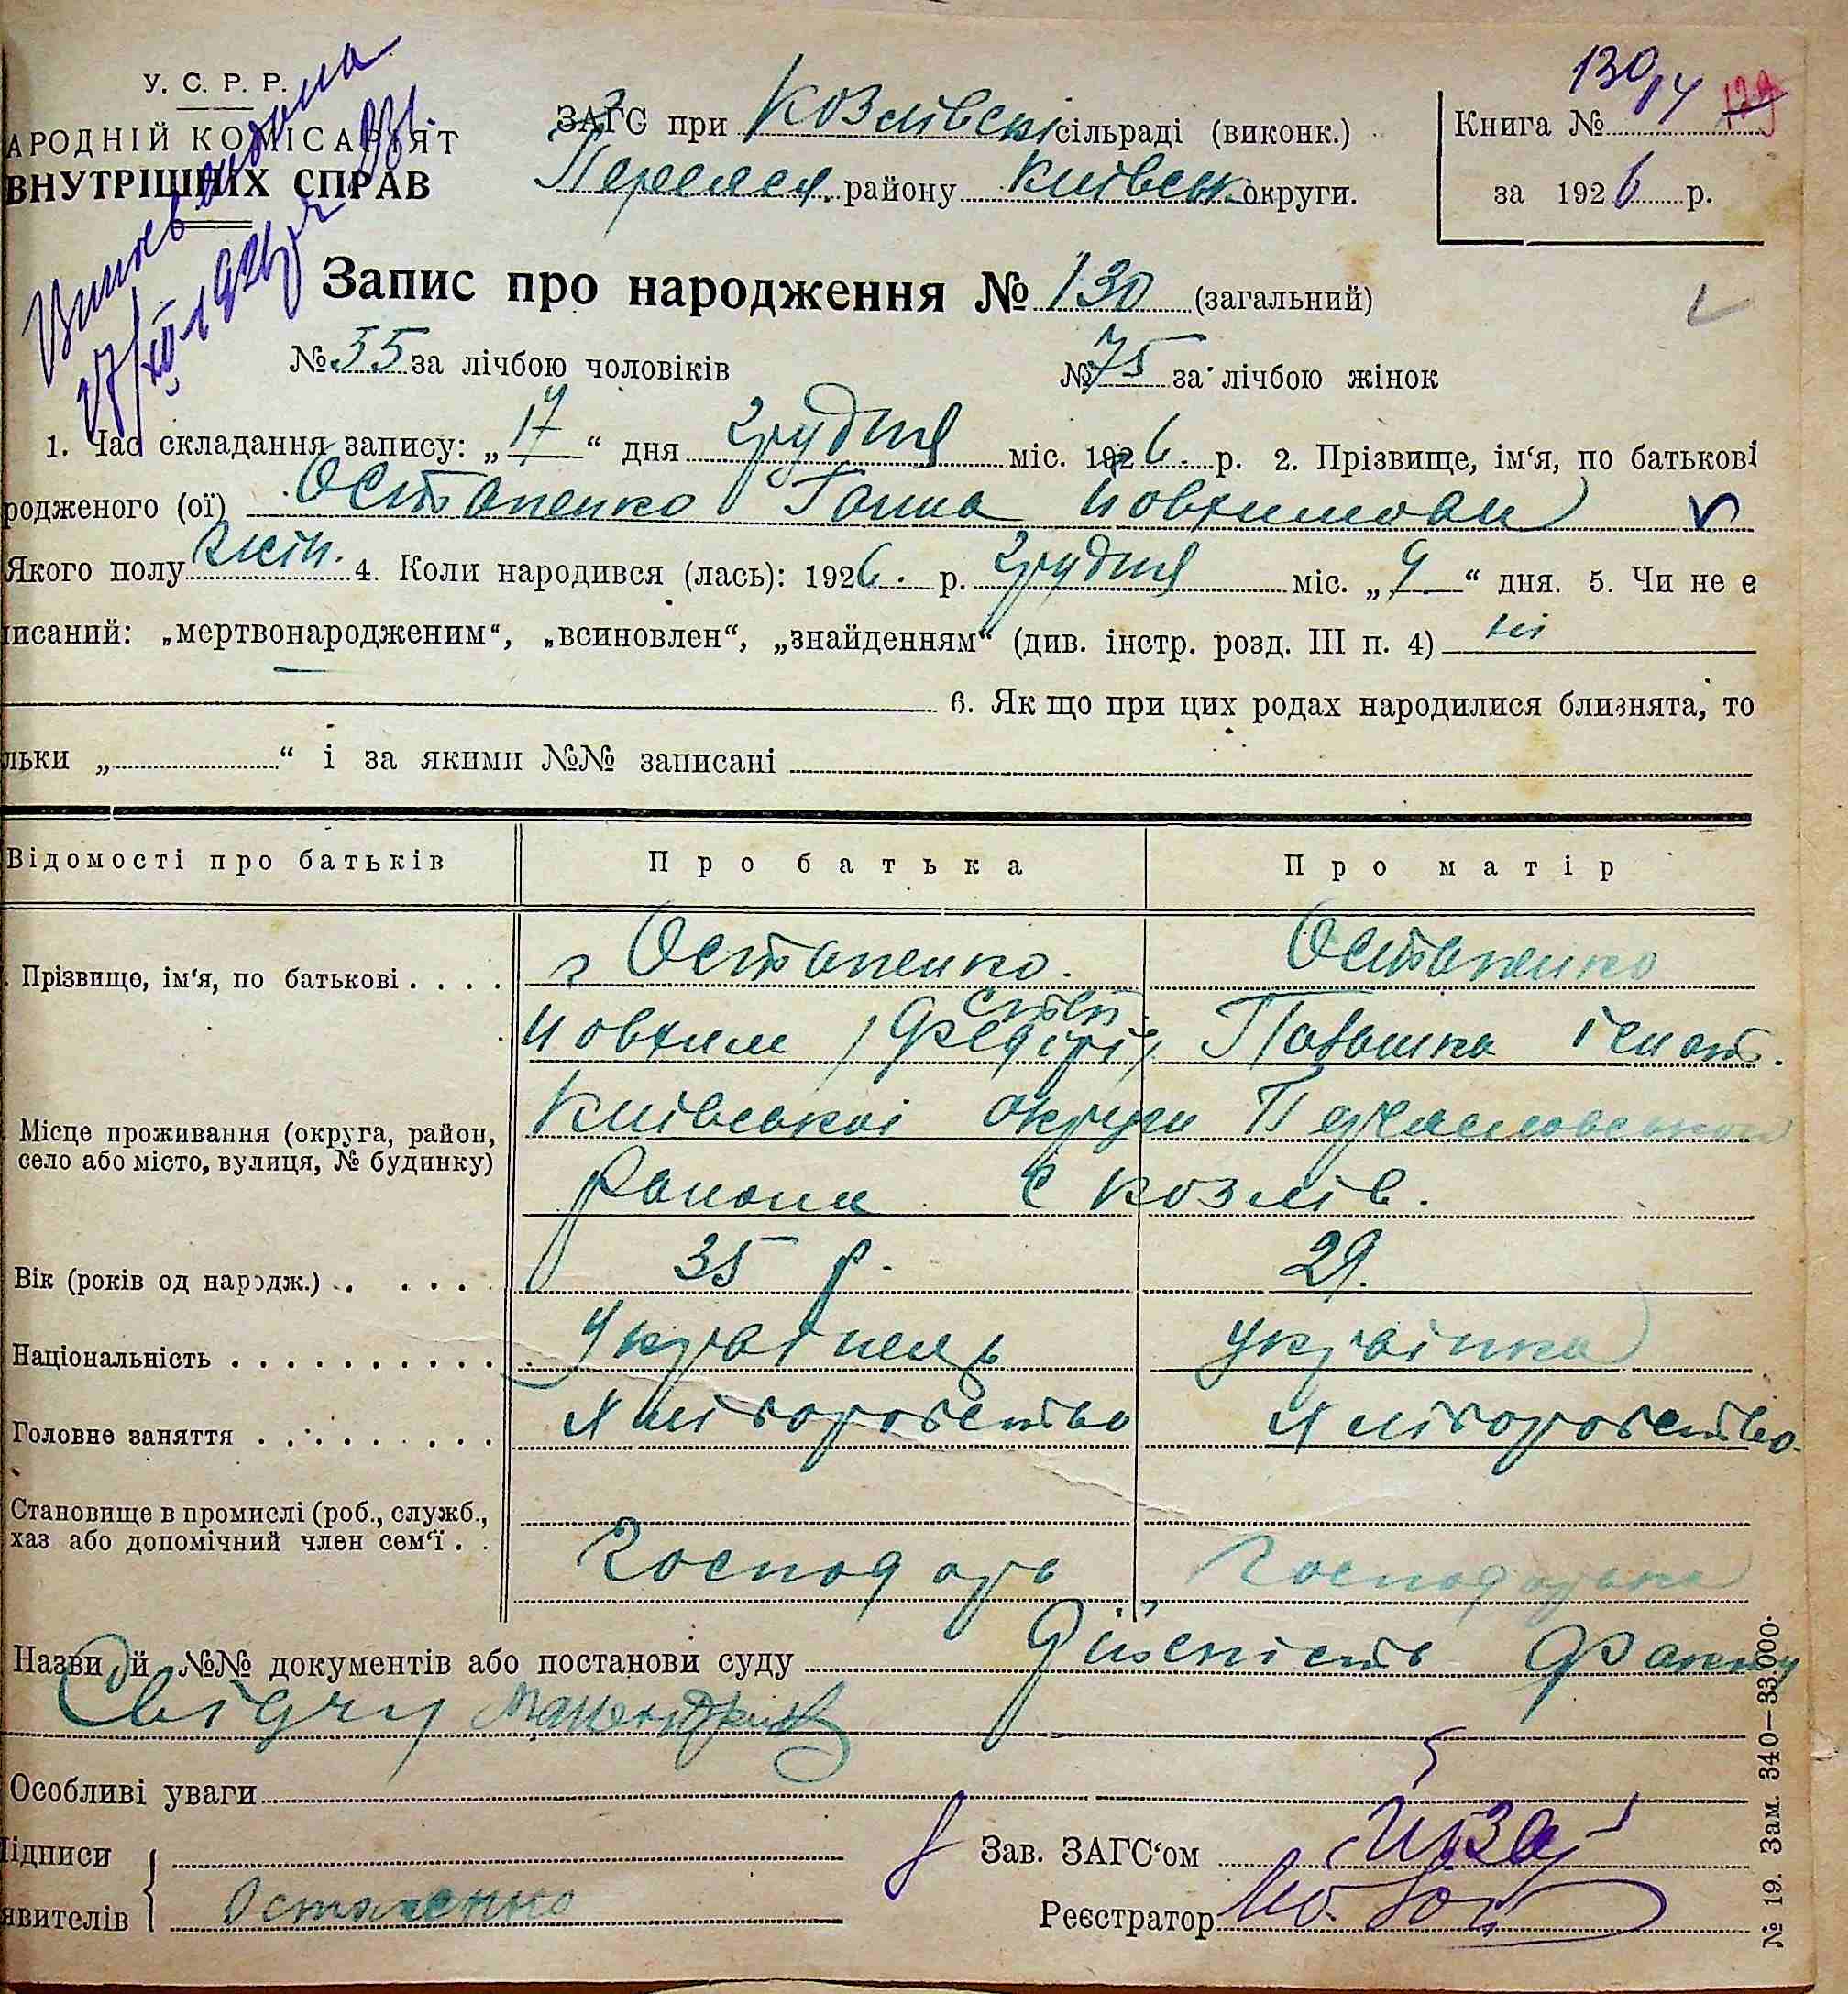 У. С. Р. Р.
АРОДНІЙ КОМІСАРІЯТ
ВНУТРІШНІХ СПРАВ
ЗАГС при Козлівскі сільраді (виконк.)
Переясл. району Київськ округи.
130
Книга №
за 1926 р.
Запис про народження № 130 (загальний)
№ 55 за лічбою чоловіків № 75 за лічбою жінок
1. Час складання запису: „17“ дня грудня міс. 1926. р. 2. Прізвище, ім‘я, по батькові
родженого (ої) Остапенко Ганна Йовхимовн
Якого полу жін. 4. Коли народився (лась): 1926. р. грудня міс. „9“ дня. 5. Чи не є
писаний: „мертвонародженим“, „всиновлен“, „знайденням“ (див. інстр. розд. III п. 4) ні
6. Як що при цих родах народилися близнята, то
льки „ “ і за якими №№ записані
Відомості про батьків Про батька Про матір
Прізвище, ім‘я, по батькові . . . . Остапенко. Остапенко
Йовхим Федір Палашка Ігнат.
Місце проживання (округа, район,
село або місто, вулиця, № будинку)
Київської округи
Району С Козлів.
Вік (років од народж.) . . . . . 35 р. 29.
Національність . . . . . . . . . . . Українець Українка
Головне заняття . . . . . . . . . Хліборобство Хліборобство.
Становище в промислі (роб., служб.,
хаз або допомічний член сем‘ї . .
Господарь Господарька
Назви й №№ документів або постанови суду Дійсність факту
Свідчу
Особливі уваги
Підписи
явителів
Остапенко
Зав. ЗАГС‘ом
Реєстратор
№ 19. Зам. 340—33.000.